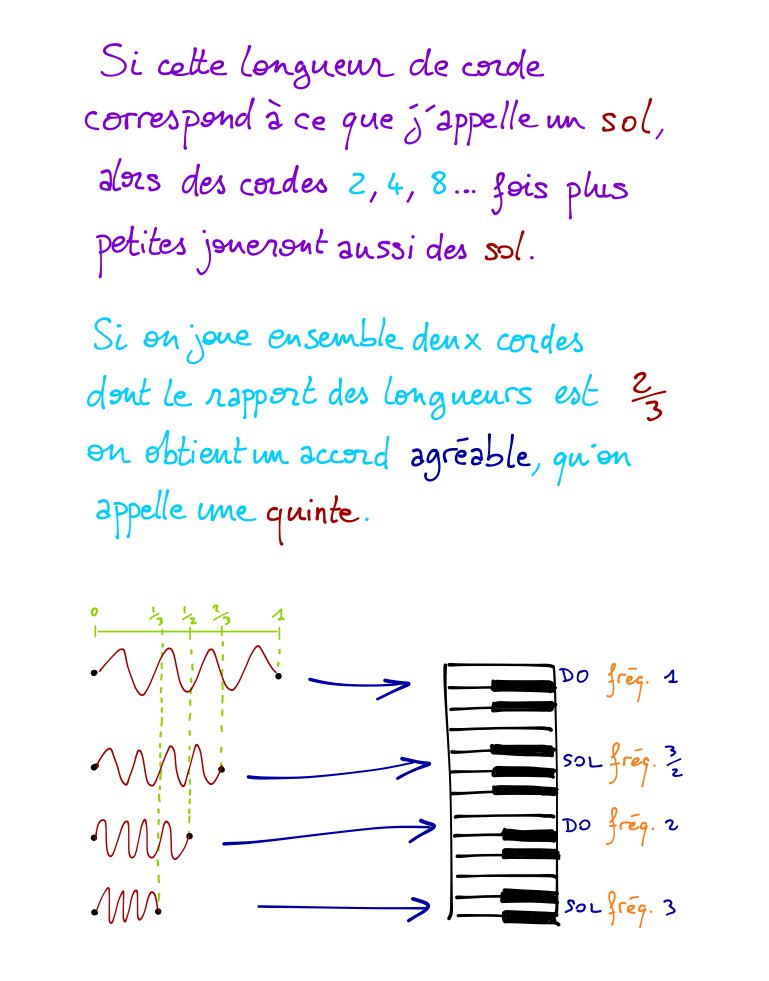 Si cette longueur de corde
correspond à ce que j'appelle un sol,
alors des cordes 2, 4, 8... fois plus
petites joueront aussi des sol.
Si on joue ensemble deux cordes
dont le rapport des longueurs est 2/3
on obtient un accord agréable, qu'on
appelle une quinte.
0 1/3 1/2 2/3 1
DO fréq. 1
SOL fréq. 3/2
DO fréq. 2
SOL fréq. 3